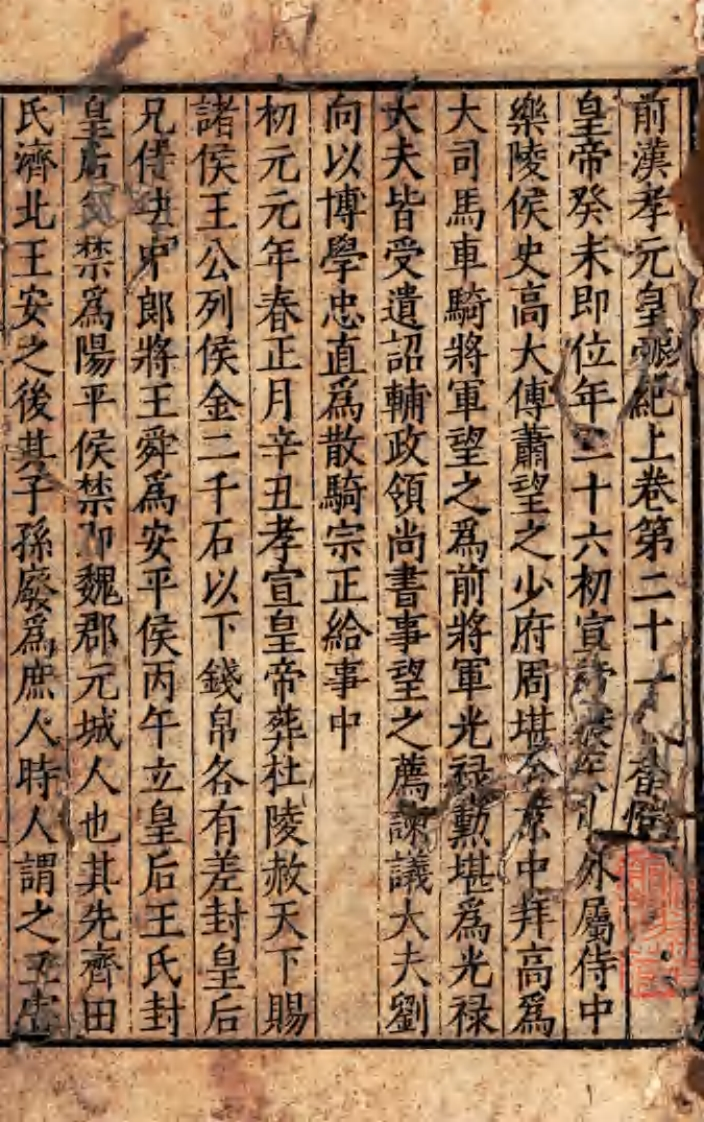 前漢孝元皇帝紀上卷第二十一　荀悅
皇帝癸未即位年二十六初宣帝寢疾以外屬侍中
樂陵侯史高大傅蕭望之少府周堪禁中拜高爲
大司馬車騎將軍望之爲前將軍光禄勲堪爲光禄
大夫皆受遺詔輔政領尚書事望之薦諫議大夫劉
向以博學忠直爲散騎宗正給事中
初元元年春正月辛丑孝宣皇帝葬杜陵赦天下賜
諸侯王公列侯金二千石以下錢帛各有差封皇后
兄侍中郎將王舜爲安平侯丙午立皇后王氏封
皇后父禁爲陽平侯禁即魏郡元城人也其先齊田
氏濟北王安之後其子孫廢爲庶人時人謂之王家